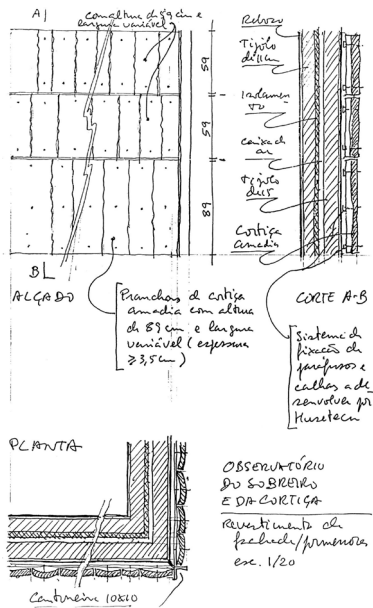 A|
com altura de 59 cm e
largura variável
59
59
89
Reboco
Tijolo
de 11 cm
Isolamen
to
caixa de
ar
Tijolo
de 15
Cortiça
amadia
B
ALÇADO
Pranchas de cortiça
amadia com altura
de 89 cm e largura
variável (espessura
≥3,5 cm)
CORTE A-B
Sistema de
fixação de
parafusos e
calhas a de
senvolver por
PLANTA
OBSERVATÓRIO
DO SOBREIRO
E DA CORTIÇA
Revestimento de
fachada/pormenores
esc. 1/20
Cantoneira 10x10